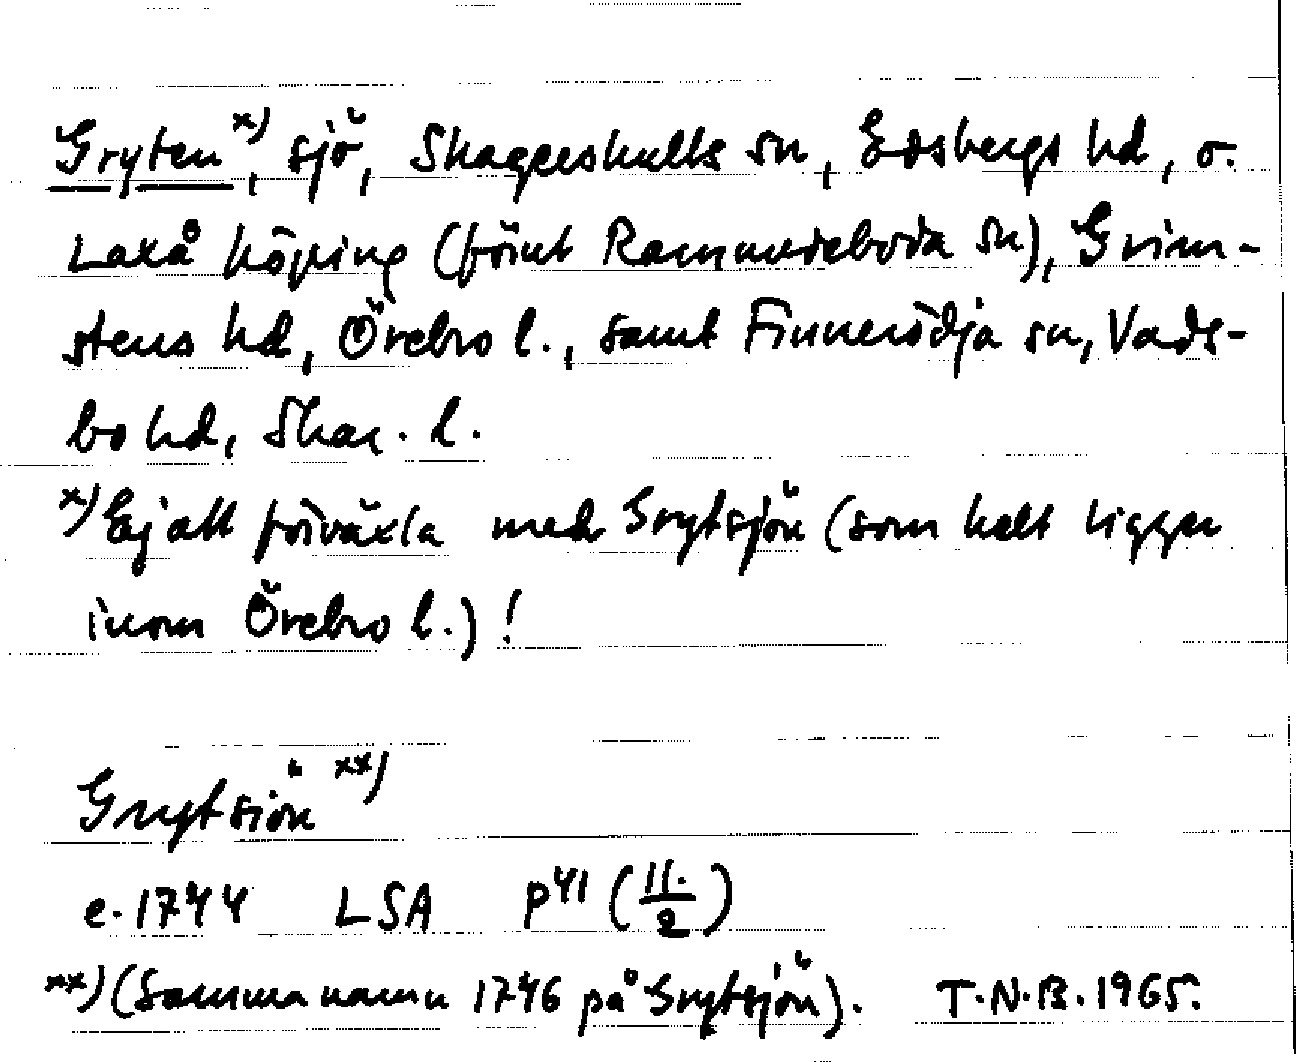 Gryten x), sjö, Skagershults sn, Edsbergs hd, o.
Laxå köping (förut Ramundeboda sn), Grim-
stens hd, Örebro l., samt Finnerödja sn, Vads-
bo hd, Skar. l.
x) Ej att förväxla med Grytsjön (som helt ligger
inom Örebro l.)!
Grytsiön xx)
e. 1744 LSA P41 (11./2)
xx) (Samma namn 1746 på Grytsjön). T.N.B. 1965.